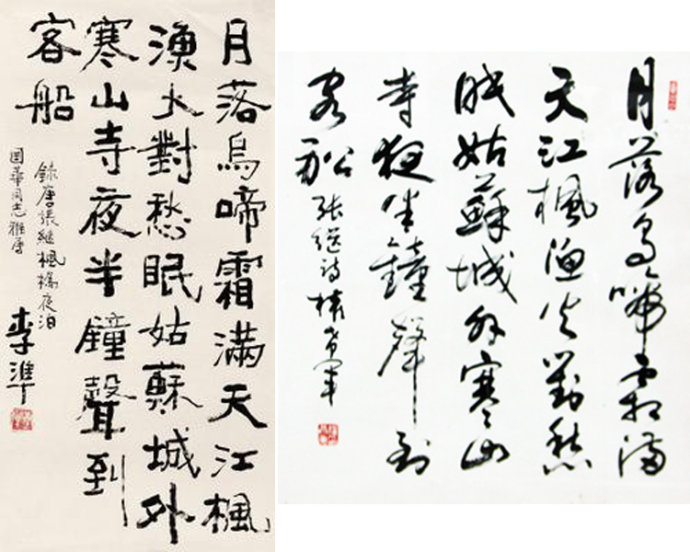 月落烏啼霜滿天江楓
漁火對愁眠姑蘇城外
寒山寺夜半鐘聲到
客船
錄唐張繼楓橋夜泊
国華同志雅屬
李準
月落烏啼霜滿
天江楓漁火對愁
眠姑蘇城外寒山
寺夜半鐘聲到
客船 張継诗